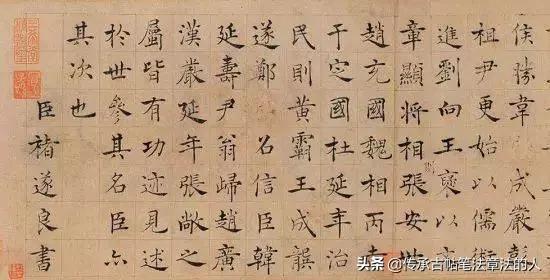 侯勝韋成嚴彭
祖尹更始以儒術
進劉向王褒以文
章顯將相張安世
趙充國魏相丙吉
于定國杜延年治
民則黃霸王成龔
遂鄭召信臣韓
延壽尹翁歸趙廣
漢嚴延年張敞之
屬皆有功迹見述
於世參其名臣亦
其次也
臣褚遂良書
头条 @传承古帖笔法章法的人